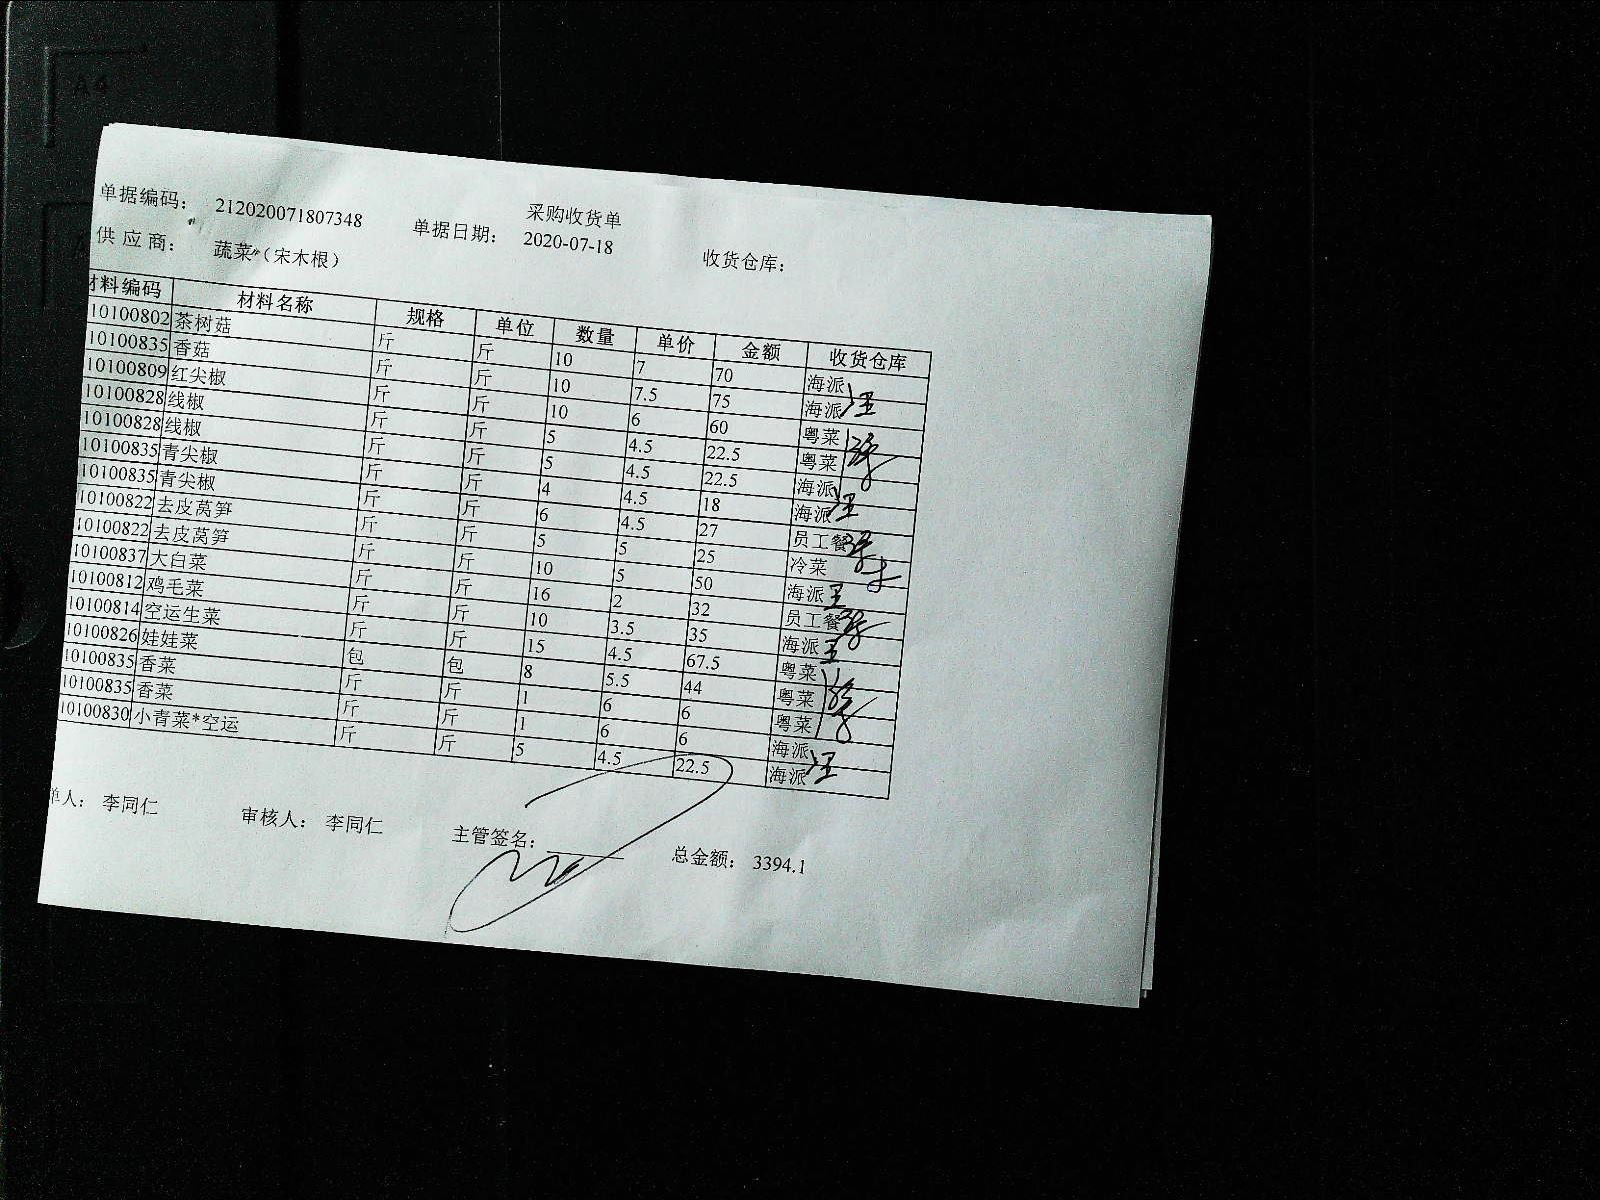 采购收货单
单据编码： 212020071807348 单据日期： 2020-07-18 收货仓库：
供应商： 蔬菜"（宋木根）
材料编码 材料名称 规格 单位 数量 单价 金额 收货仓库
10100802 茶树菇 斤 斤 10 7 70 海派
10100835 香菇 斤 斤 10 7.5 75 海派
10100809 红尖椒 斤 斤 10 6 60 粤菜
10100828 线椒 斤 斤 5 4.5 22.5 粤菜
10100828 线椒 斤 斤 5 4.5 22.5 海派
10100835 青尖椒 斤 斤 4 4.5 18 海派
10100835 青尖椒 斤 斤 6 4.5 27 员工餐
10100822 去皮莴笋 斤 斤 5 5 25 冷菜
10100822 去皮莴笋 斤 斤 10 5 50 海派
10100837 大白菜 斤 斤 16 2 32 员工餐
10100812 鸡毛菜 斤 斤 10 3.5 35 海派
10100814 空运生菜 斤 斤 15 4.5 67.5 粤菜
10100826 娃娃菜 包 包 8 5.5 44 粤菜
10100835 香菜 斤 斤 1 6 6 粤菜
10100835 香菜 斤 斤 1 6 6 海派
10100830 小青菜*空运 斤 斤 5 4.5 22.5 海派
单人： 李同仁 审核人： 李同仁 主管签名： 总金额： 3394.1